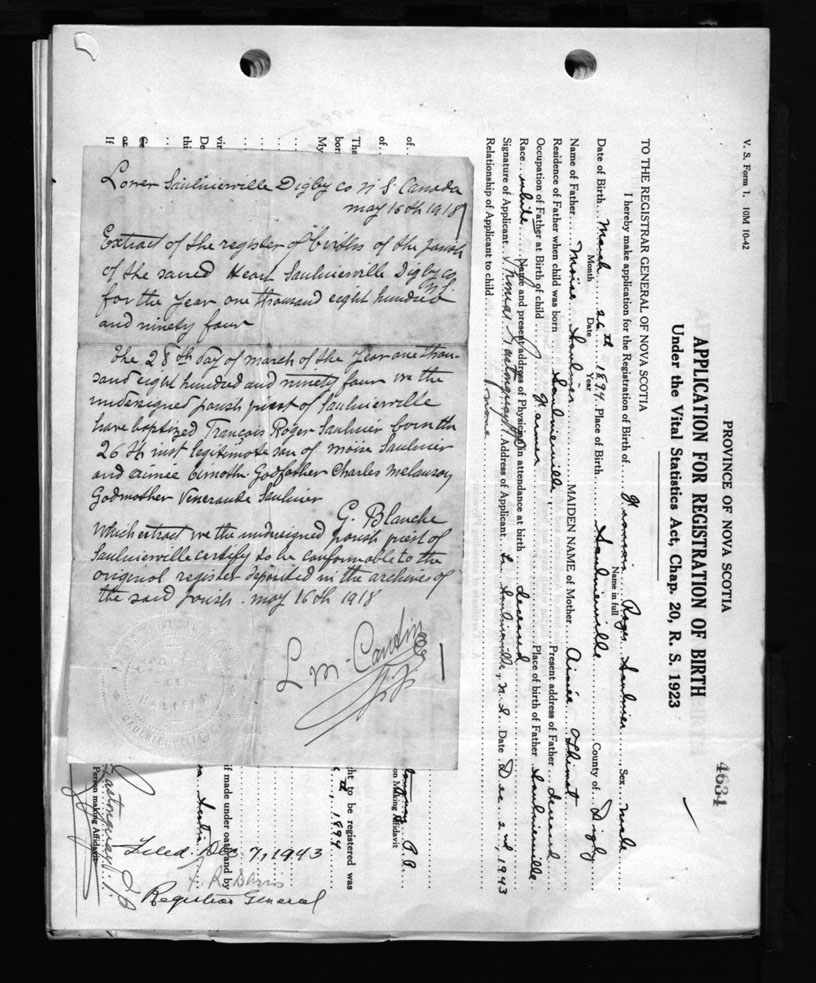 V. S. Form 1. 10M 10-42
PROVINCE OF NOVA SCOTIA
4634
APPLICATION FOR REGISTRATION OF BIRTH
Under the Vital Statistics Act, Chap. 20, R. S. 1923
TO THE REGISTRAR GENERAL OF NOVA SCOTIA
I hereby make application for the Registration of Birth of Roger Saulnier Sex male
Name in full
Date of Birth March 26th 1894 Place of Birth Saulnierville County of Digby
Month Date Year
Name of Father Moise Saulnier MAIDEN NAME of Mother Aimée Thimot
Residence of Father when child was born Saulnierville Present address of Father deceased
Occupation of Father at Birth of child Farmer Place of birth of Father Saulnierville
Race white Name and present address of Physician in attendance at birth deceased
Signature of Applicant Thomas Address of Applicant L. Saulnierville, N.S. Date Dec 2nd, 1943
Relationship of Applicant to child none
Lower Saulnierville Digby Co N S. Canada
may 16th 1918
Extract of the register of births of the parish
of the sacred Heart Saulnierville Digby co
N S
for the year one thousand eight hundred
and ninety four
The 28th day of march of the year one thou-
sand eight hundred and ninety four we the
undersigned parish priest of Saulnierville
have baptized François Roger Saulnier born the
26th inst legitimate son of moise Saulnier
and aimée Godfather Charles melanson
Godmother Saulnier
G. Blanche
Which extract we the undersigned parish priest of
Saulnierville certify to be conformable to the
original register deposited in the archives of
the said parish. may 16th 1918
L M
on Making Affidavit
ht to be registered was
, 1894
if made under oath and by
Person making Affidavit
Filed Dec. 7, 1943
Registrar General